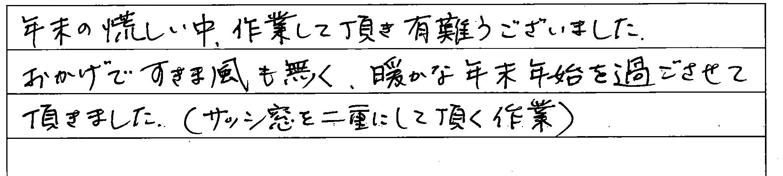 年末の慌しい中、作業して頂き有難うございました.
おかげですきま風も無く、暖かな年末年始を過ごさせて
頂きました.(サッシ窓を二重にして頂く作業)